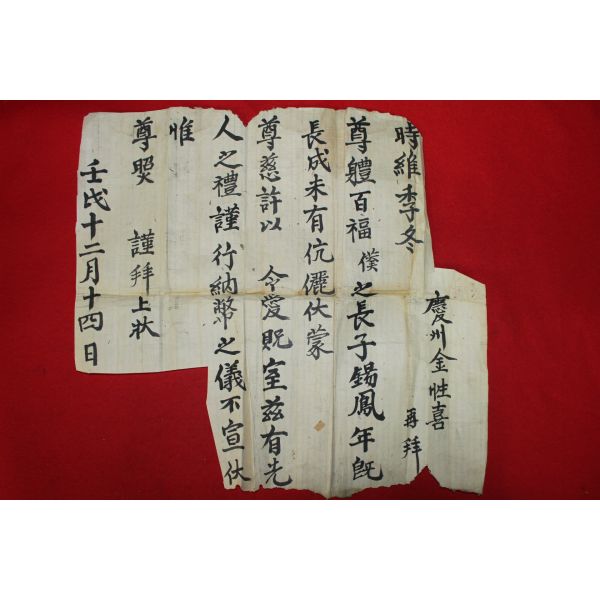 慶州金性喜 再拜
時維季冬
尊軆百福 僕之長子錫鳳年旣
長成未有伉儷伏蒙
尊慈許以 令愛貺室玆有先
人之禮謹行納幣之儀不宣伏
惟
尊照 謹拜上狀
壬戌十二月十四日